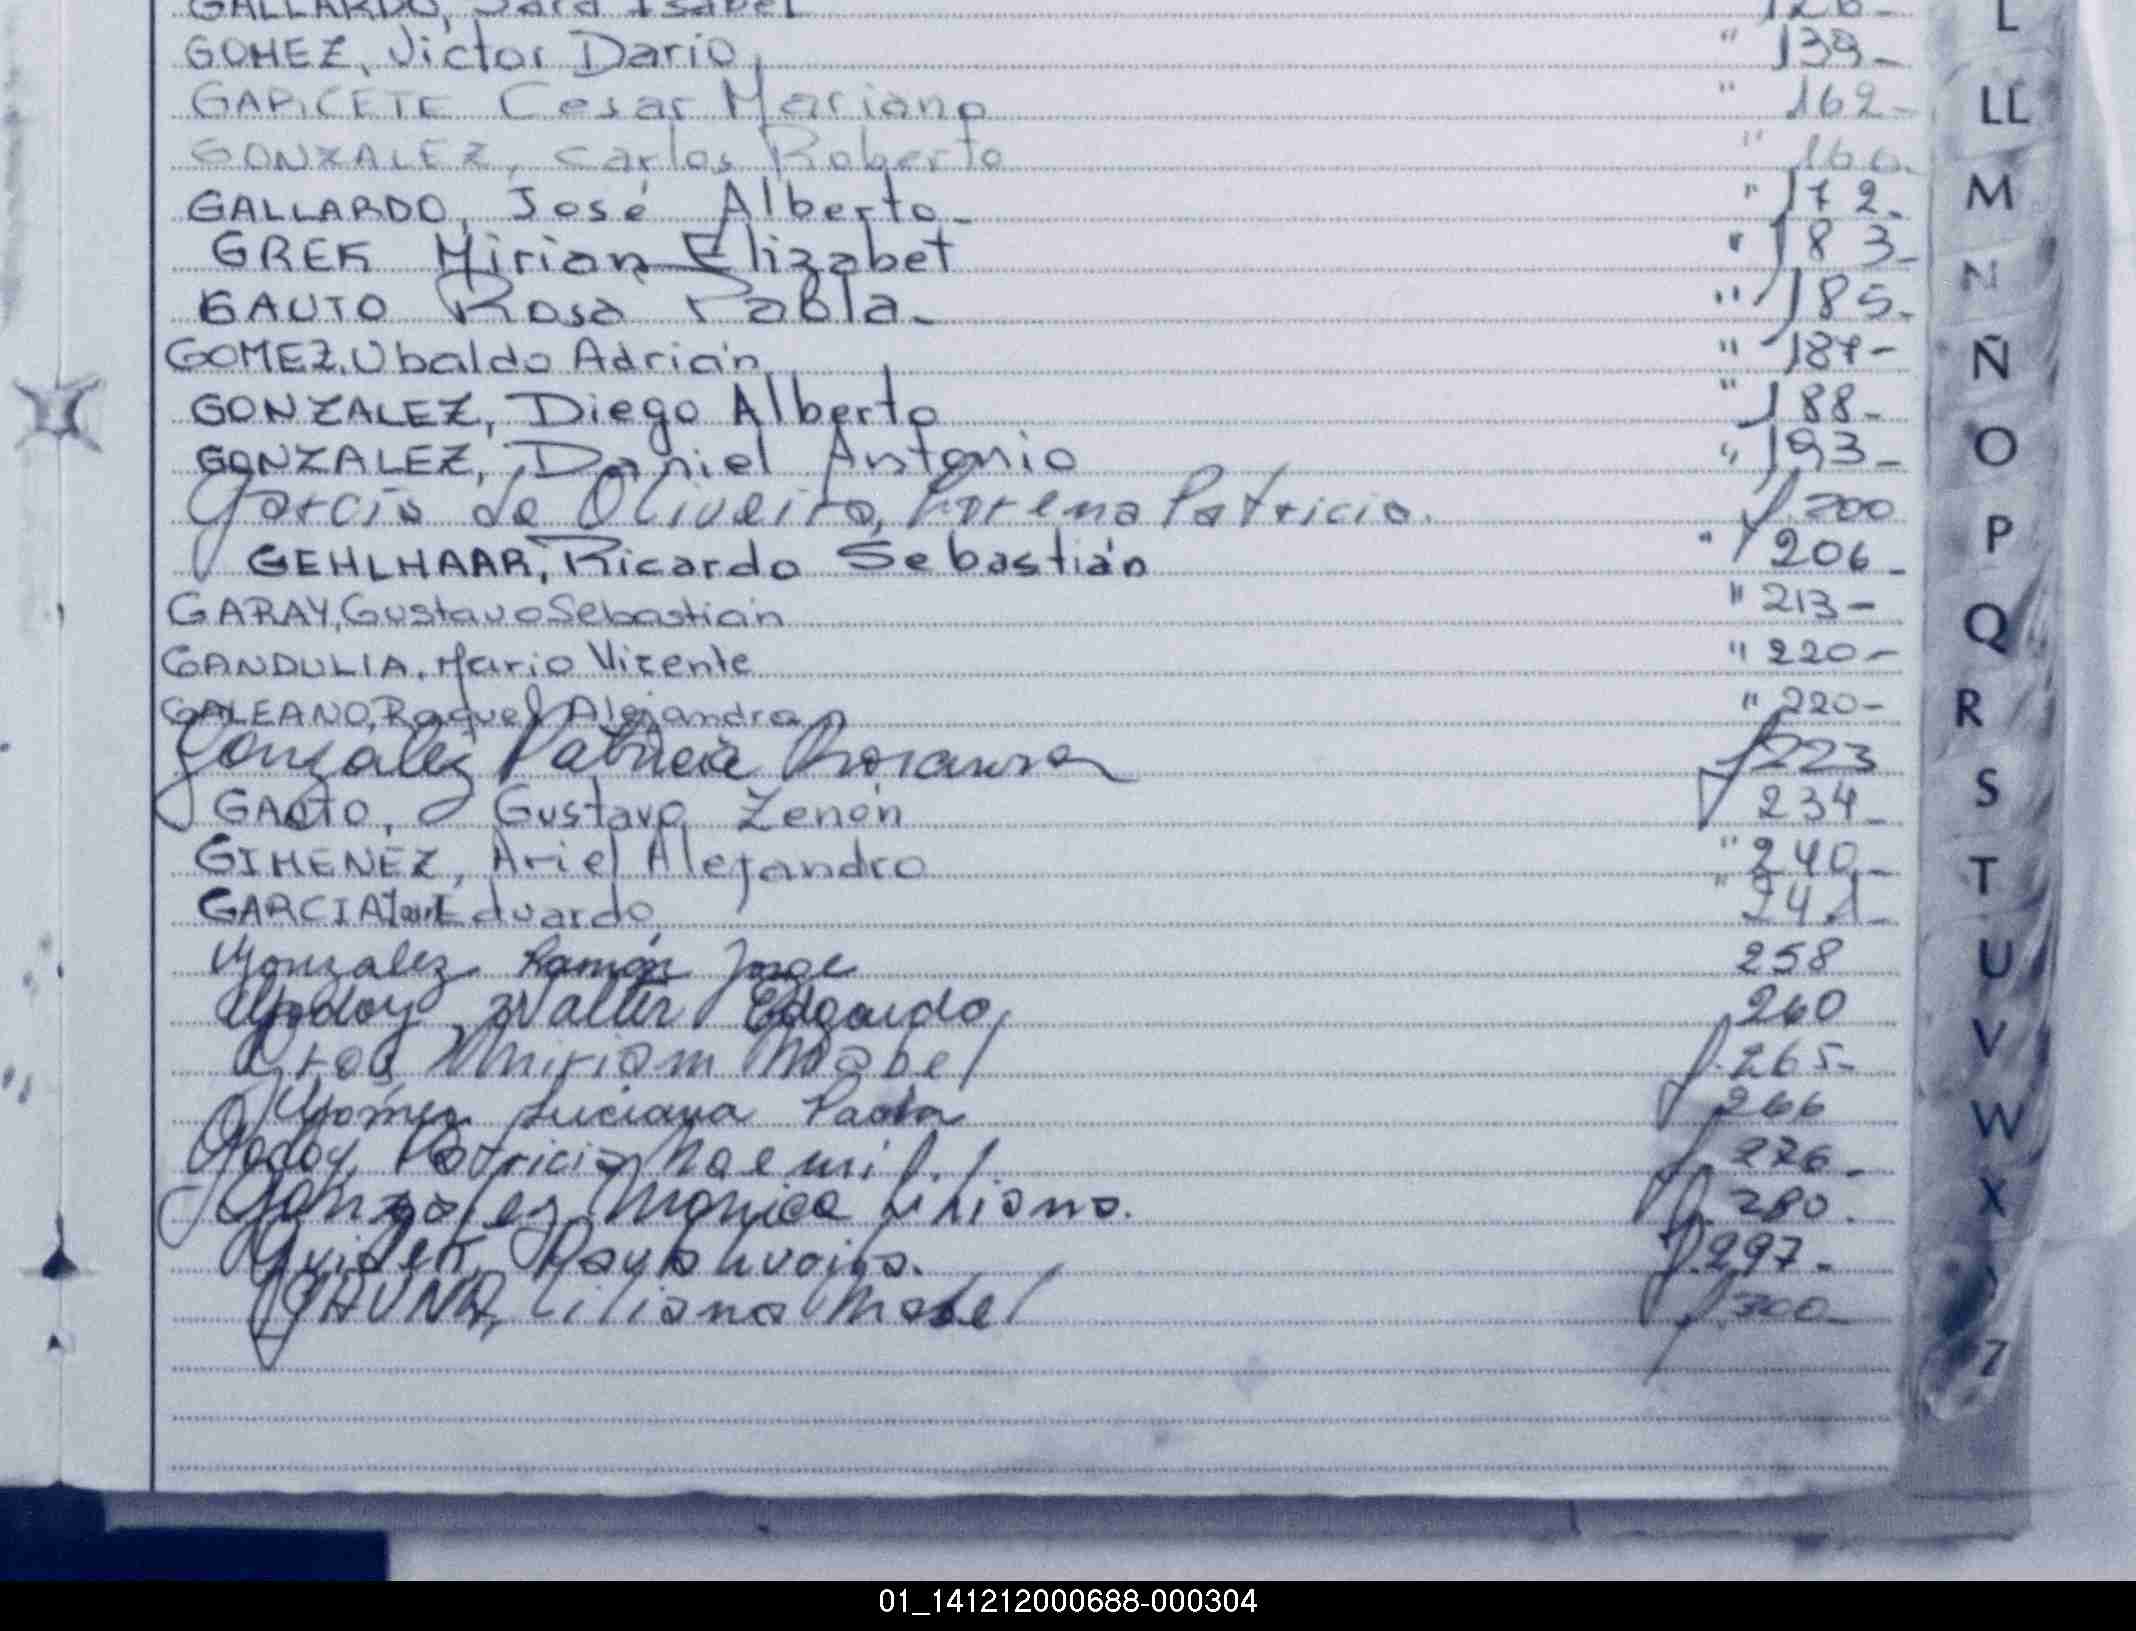 GALLARDO, Sara Isabel 126-
GOMEZ, Victor Dario, " 139-
GAPICETE Cesar Mariano " 162-
GONZALEZ, Carlos Roberto " 166.
GALLARDO, José Alberto- " 172.
GREK Mirian Elizabet " 183-
GAUTO Rosa Pabla- " 185-
GOMEZ, Ubaldo Adrián " 187-
GONZALEZ, Diego Alberto " 188-
GONZALEZ, Daniel Antonio " 193-
Garcia de Oliveira, Lorena Patricia. f. 200
GEHLHAAR, Ricardo Sebastián " 206-
GARAY, Gustavo Sebastián " 213-
GANDULIA, Mario Vicente " 220-
GALEANO, Raquel Alejandra " 220-
Gonzalez Patricia Rosaura f 223
GAUTO, Gustavo Zenón 234-
GIMENEZ, Ariel Alejandro " 240-
GARCIA Eduardo, " 241-
Gonzalez Ramón Jorge 258
Godoy Walter Edgardo, 260
Miriam Mabel f. 265-
Gómez Luciana Paola 266
Godoy, Patricia Noemi f. 276-
Gonzalez Monica Liliana. f. 280.
f. 297-
GAUNA, Liliana Mabel f. 300-
L
LL
M
N
Ñ
O
P
Q
R
S
T
U
V
W
X
Z
01_141212000688-000304